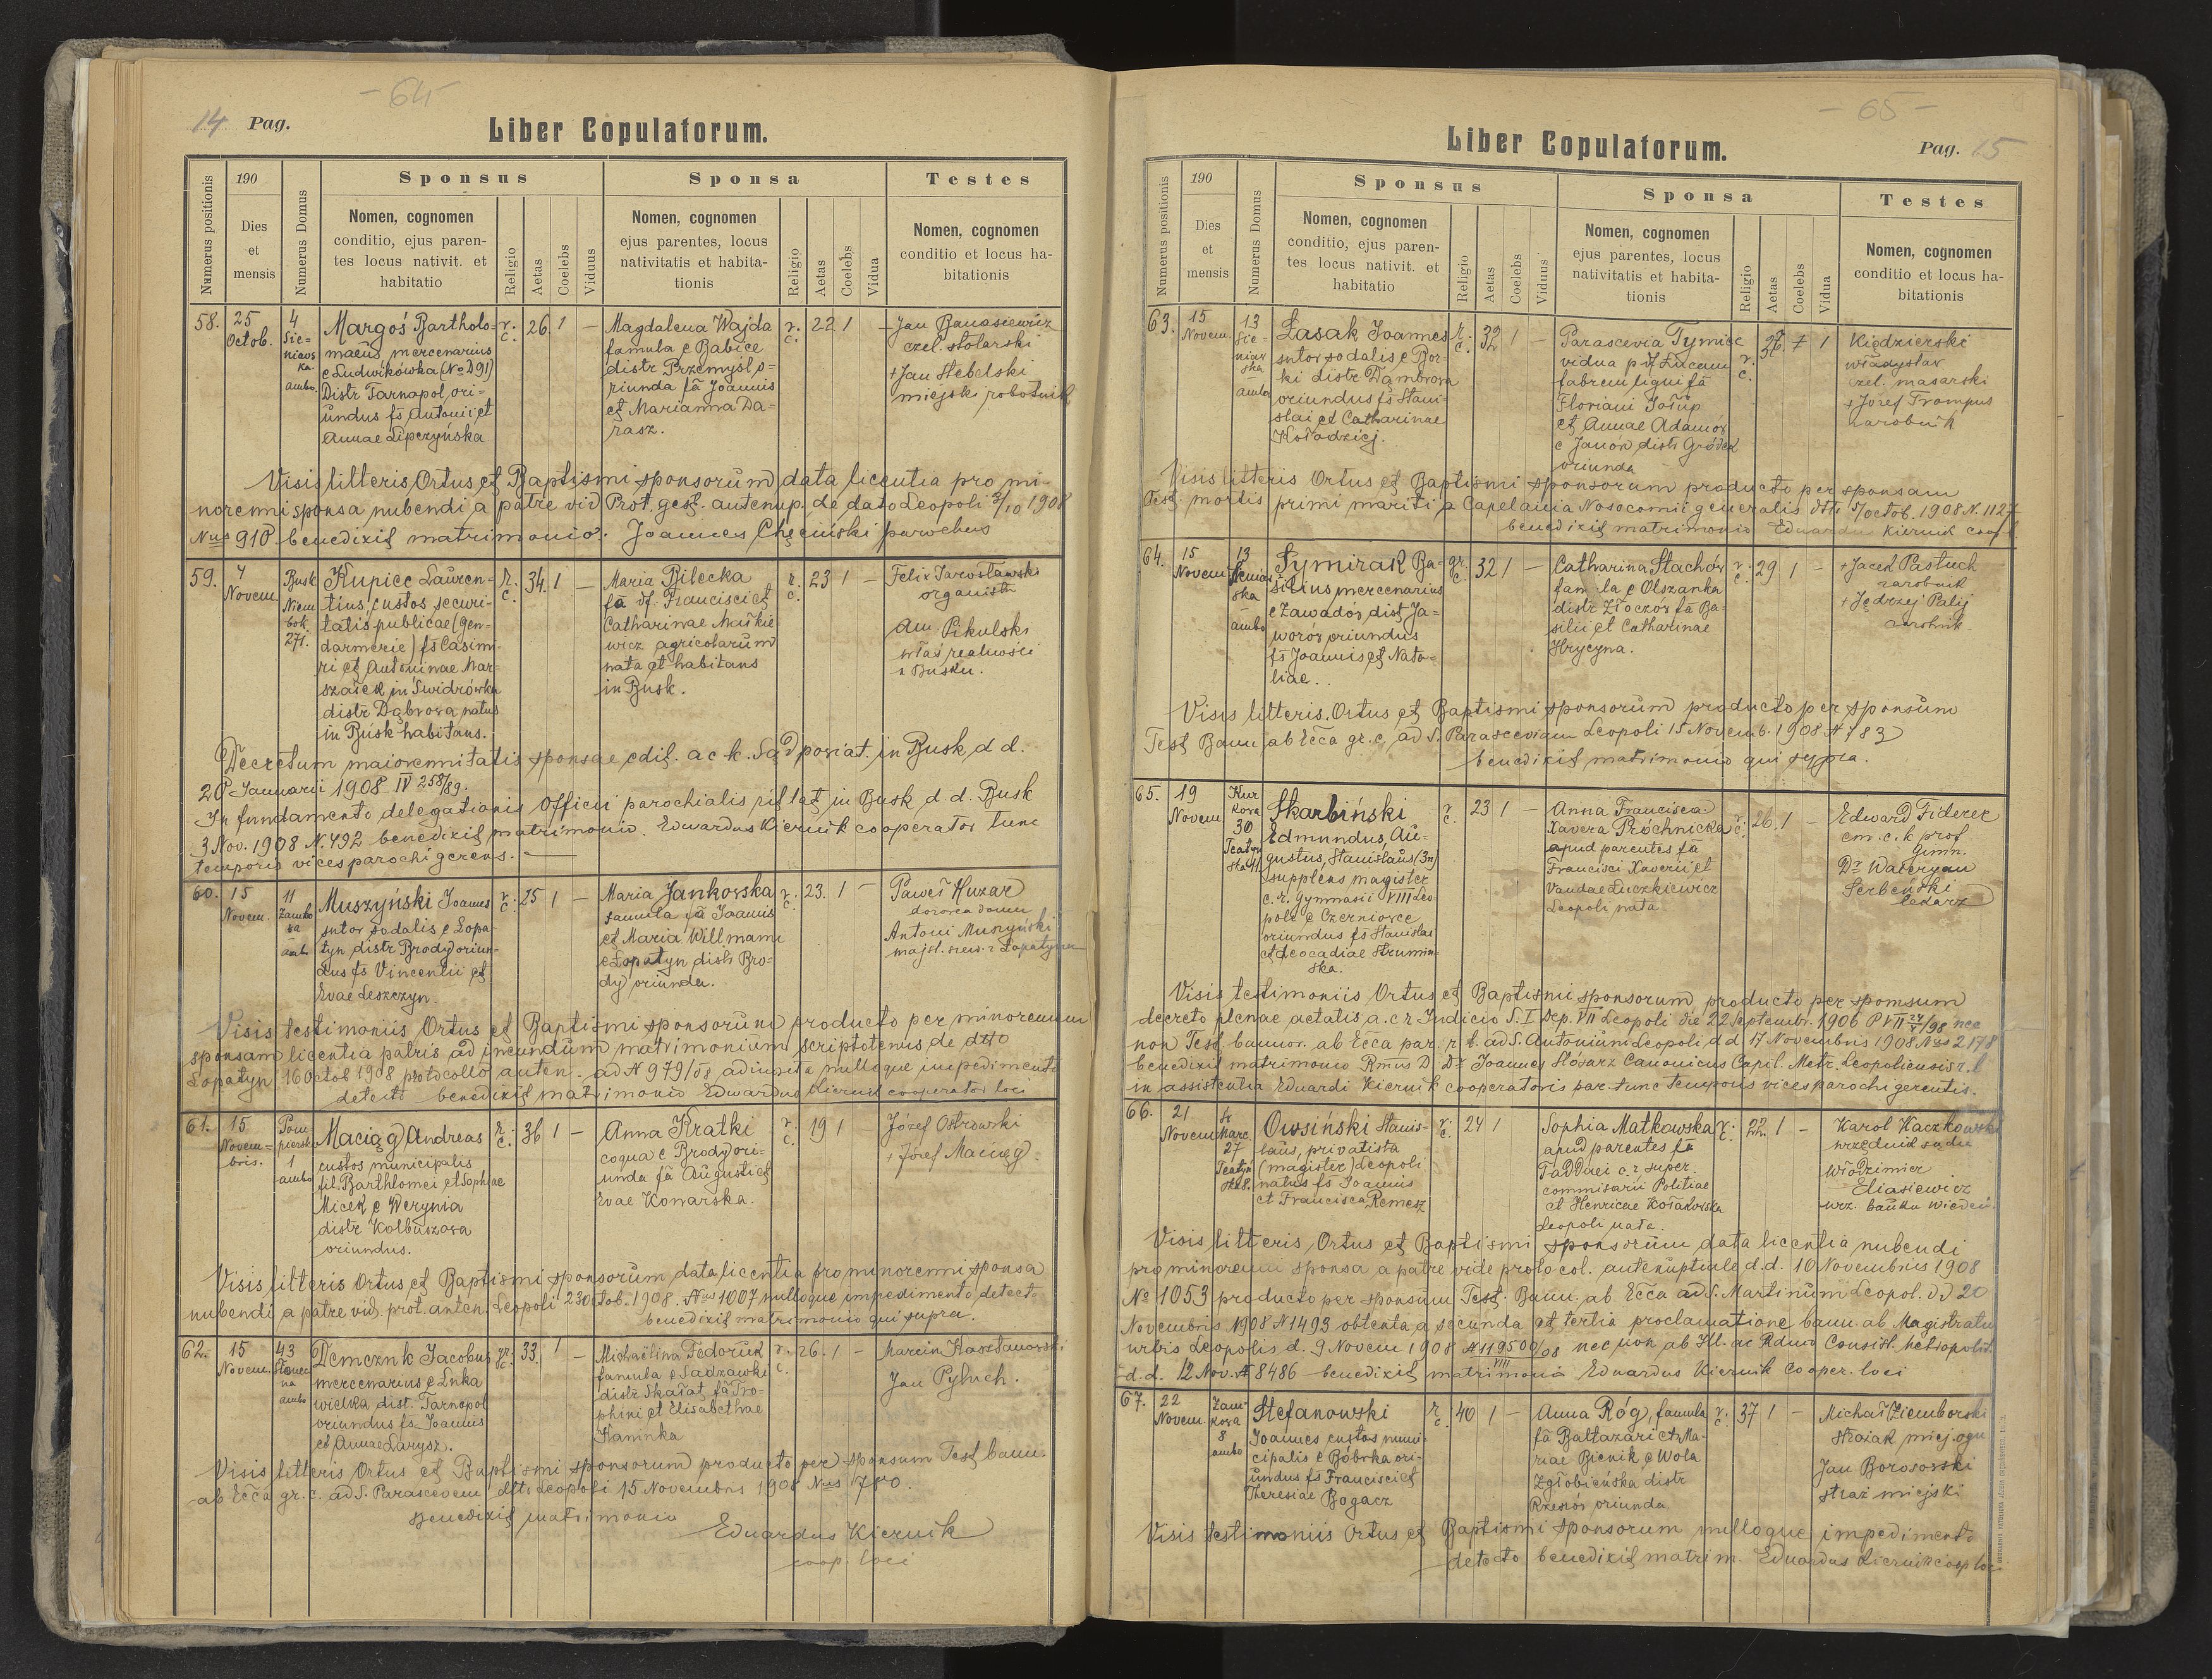 - 64 -
14 Pag.
Liber Copulatorum.
Numerus positionis
190
Dies
et
mensis
Numerus Domus
Sponsus
Nomen, cognomen
conditio, ejus paren-
tes locus nativit. et
habitatio
Religio
Aetas
Coelebs
Viduus
Sponsa
Nomen, cognomen
ejus parentes, locus
nativitatis et habita-
tionis
Religio
Aetas
Coelebs
Vidua
Testes
Nomen, cognomen
conditio et locus ha-
bitationis
58.
25
Octob.
4
Sie-
niaws
ka.
ambo.
Margoś Bartholo-
maeus mercenarius
e Ludwikówka (No D 91)
Distr Tarnopol ori-
undus fs Antonii et
Annae Lipczyńska
r.
c.
26. 1 -
Magdalena Wajda
famula e Babice
distr Przemyśl o-
riunda fa Joannis
et Marianna Da-
rasz.
r.
c.
22 1 -
Jan Banasiewicz
czel. stolarski
+ Jan Stebelski
miejski robotnik
Visis litteris Ortus et Baptismi sponsorum data licentia pro mi-
norenni sponsa nubendi a patre vid Prot. gest. antenup. de dato Leopoli 2/10 1908
Nus 910 benedixit matrimonio. Joannes Chęciński parochus
59.
4
Novem.
Busk
Niem
bok.
271.
Kupiec Lauren-
tius, custos securi-
tatis publicae (gen-
darmerie) fs Casimi-
ri et Antoninae Mar-
szałek in Świdrówka
distr Dąbrowa natus
in Busk habitans.
r.
c.
34. 1 -
Maria Bilecka
fa df. Francisci et
Catharinae Maśkie
wicz agricolarum
nata et habitans
in Busk.
r.
c.
23 1 -
Felix Jarosławski
organista
Am Pikulski
właś realności
z Busku.
Decretum maiorennitatis sponsae edit. a c. k. Sąd powiat. in Busk d d.
20 Januarii 1908 IV 258/89.
In fundamento delegationis Officii parochialis rit lat in Busk d. d. Busk
3 Nov. 1908 N. 492 benedixit matrimonio. Edwardus Kiernik cooperator tunc
temporis vices parochi gerens.
60.
15
Novem.
11
Zamko
wa
amb
Muszyński Joannes
sutor sodalis e Łopa-
tyn distr Brody oriun-
dus fs Vincentii et
Evae Leszczyn.
r.
c.
25 1 -
Maria Jankowska
famula fa Joannis
et Maria Willmann
e Łopatyn distr Bro-
dy oriunda.
r.
c.
23. 1 -
Paweł Huzar
dozorca domu
Antoni Muszyński
majst. szew. z Łopatyna
Visis testimoniis Ortus et Baptismi sponsorum producto per minorennem
sponsam licentia patris ad ineundum matrimonium scriptotenus de dtto
Łopatyn 16 Octob 1908 protocollo anten. ad N 979/08 adiuncta nulloque impedimento
detecto benedixit matrimonio Edwardus Kiernik cooperator loci
61.
15
Novem-
bris.
Pom
piersk
1
ambo
Maciąg Andreas
custos municipalis
fil. Barthlomei et Sophiae
Micek e Werynia
distr Kolbuszowa
oriundus.
r.
c.
36 1 -
Anna Kratki
coqua e Brody ori-
unda fa Augusti et
Evae Konarska.
r.
c.
19 1 -
Józef Ostrowski
+ Józef Maciąg.
Visis litteris Ortus et Baptismi sponsorum, data licentia pro minorenni sponsa
nubendi a patre vid. prot. anten. Leopoli 23 Octob. 1908. Nus 1007 nulloque impedimento detecto
benedixit matrimonio qui supra.
62.
15
Novem.
43
Słonecz
na
ambo
Demcznk Jacobus
mercenarius e Łnka
wielka dist. Tarnopol
oriundus fs. Joannis
et Annae Larysz.
gr.
c.
33. 1 -
Michaëlina Fedoruk
famula e Sadzawki
distr Skałat fa Tro-
phini et Elisabethae
Kaninka
r.
c.
26. 1 -
Marcin Kasztanowski
Jan Pyluch.
Visis litteris Ortus et Baptismi sponsorum producto per sponsum Test bann.
ab Ecca gr. c. ad S. Parasceven dtto Leopoli 15 Novembris 1908 Nus 780.
benedixit matrimonio
Eduardus Kiernik
coop. loci
- 65 -
Liber Copulatorum.
Pag. 15
Numerus positionis
190
Dies
et
mensis
Numerus Domus
Sponsus
Nomen, cognomen
conditio, ejus paren-
tes locus nativit. et
habitatio
Religio
Aetas
Coelebs
Viduus
Sponsa
Nomen, cognomen
ejus parentes, locus
nativitatis et habita-
tionis
Religio
Aetas
Coelebs
Vidua
Testes
Nomen, cognomen
conditio et locus ha-
bitationis
63.
15
Novem.
13
Sie-
niaw
ska
-
ambo
Łasak Joannes
sutor sodalis e Bor-
ki distr Dąmbrowa
oriundus fs Stani-
slai et Catharinae
Kołodziej.
r.
c.
32 1 -
Parascevia Tymiec
vidua p df Lucam
fabrum ligni fa
Floriani Sołup
et Annae Adamow
e Janów distr Gródek
oriunda
r.
c.
1
Kiędzierski
Władysław
czel. masarski
+ Józef Trompus
zarobnik
Visis litteris Ortus et Baptismi sponsorum producto per sponsam
Test. mortis primi mariti a Capelania Nosocomii generalis dtto 5/Octob. 1908 N. 1127
benedixit matrimonio Eduardus Kiernik coop l.
64.
15
Novem
13
Sieniaw
ska
-
ambo
Symirak Ba-
silius mercenarius
e Zawadów dist Ja-
worów oriundus
fs Joannis et Nata-
liae.
gr.
c.
32 1 -
Catharina Stachów
famula e Olszanka
distr Złoczów fa Ba-
silii et Catharinae
Hrycyna.
r.
c.
29 1 -
+ Jacek Pastuch
zarobnik
+ Jędrzej Palij
zarobnik.
Visis litteris Ortus et Baptismi sponsorum producto per sponsum
Test Bann. ab Ecca gr. c. ad S. Parasceviam Leopoli 15 Novemb. 1908 N 783
benedixit matrimonio qui supra.
65.
19
Novem
Kur
kowa
30
Teatyn
ska 11.
Skarbiński
Edmundus, Au-
gustus, Stanislaus (3n)
supplens magister
c. r. Gymnasii VIII Leo-
pole e Czerniowce
oriundus fs Stanislai
et Leocadiae Strumiń-
ska.
r.
c.
23 1 -
Anna Francisca
Xavera Próchnicka
apud parentes fa
Francisci Xaverii et
Vandae Łuczkiewicz
Leopoli nata
r.
c.
26. 1 -
Edward Fiderer
em. c. k prof
Gimn.
Dr Waleryan
Serbeński
lekarz
Visis testimoniis Ortus et Baptismi sponsorum producto per sponsum
decreto plenae aetatis a. c r Judicio S. I Dep. VII Leopoli die 22 Septembr. 1906 P VII 24/V/98 nec
non Test. bannor. ab Ecca par. r. l. ad S. Antonium Leopoli d. d 17 Novembris 1908 Nus 2178
benedixit matrimonio Rmus D. Dr Joannes Ślósarz Canonicus Capit. Metr. Leopoliensis r. l
in assistentia Eduardi Kiernik cooperatoris par. tunc temporis vices parochi gerentis.
66.
21
Novem
27
Teatyń
ska 8.
Owsiński Stanis-
laus, privatista
(magister) Leopoli
natus fs Joannis
et Francisca Remesz
r.
c.
24 1
Sophia Matkowska
apud parentes fa
Taddaei c. r super.
commisarii Politiae
et Henricae Kołakowska
Leopoli nata.
r.
c.
22. 1 -
Karol Kaczkowski
urzędnik sądu
Włodzimierz
Eliasiewicz
urz. banku wiedeń.
Visis litteris Ortus et Baptismi sponsorum data licentia nubendi
pro minorenni sponsa a patre vide protocol. antenuptiale d. d. 10 Novembris 1908
No 1053 producto per sponsum Test. Bann. ab Ecca ad S. Martinum Leopol. d d 20
Novembris 1908 N 1493 obtenta a secunda et tertia proclamatione bann. ab Magistratu
urbis Leopolis d. 9 Novem 1908 N 119500/VIII/08 nec non ab Ill. ac Rdmo Consist. Metropolit.
d. d. 12 Nov. N 8486 benedixit matrimonio Eduardus Kiernik cooper. loci
67.
22
Novem.
Zam-
kowa
8
ambo
Stefanowski
Joannes custos muni-
cipalis e Bóbrka ori-
undus fs Francisci et
Theresiae Bogacz
r.
c.
40 1 -
Anna Róg, famula
fa Baltazari et Ma-
riae Bienik e Wola
Zgłobieńska distr
Rzeszów oriunda.
r.
c.
37 1 -
Michał Ziemborski
strażak miej. ogn
Jan Borosowski
straż miejski
Visis testimoniis Ortus et Baptismi sponsorum nulloque impedimento
detecto benedixit matrim. Eduardus Kiernik coop loc.